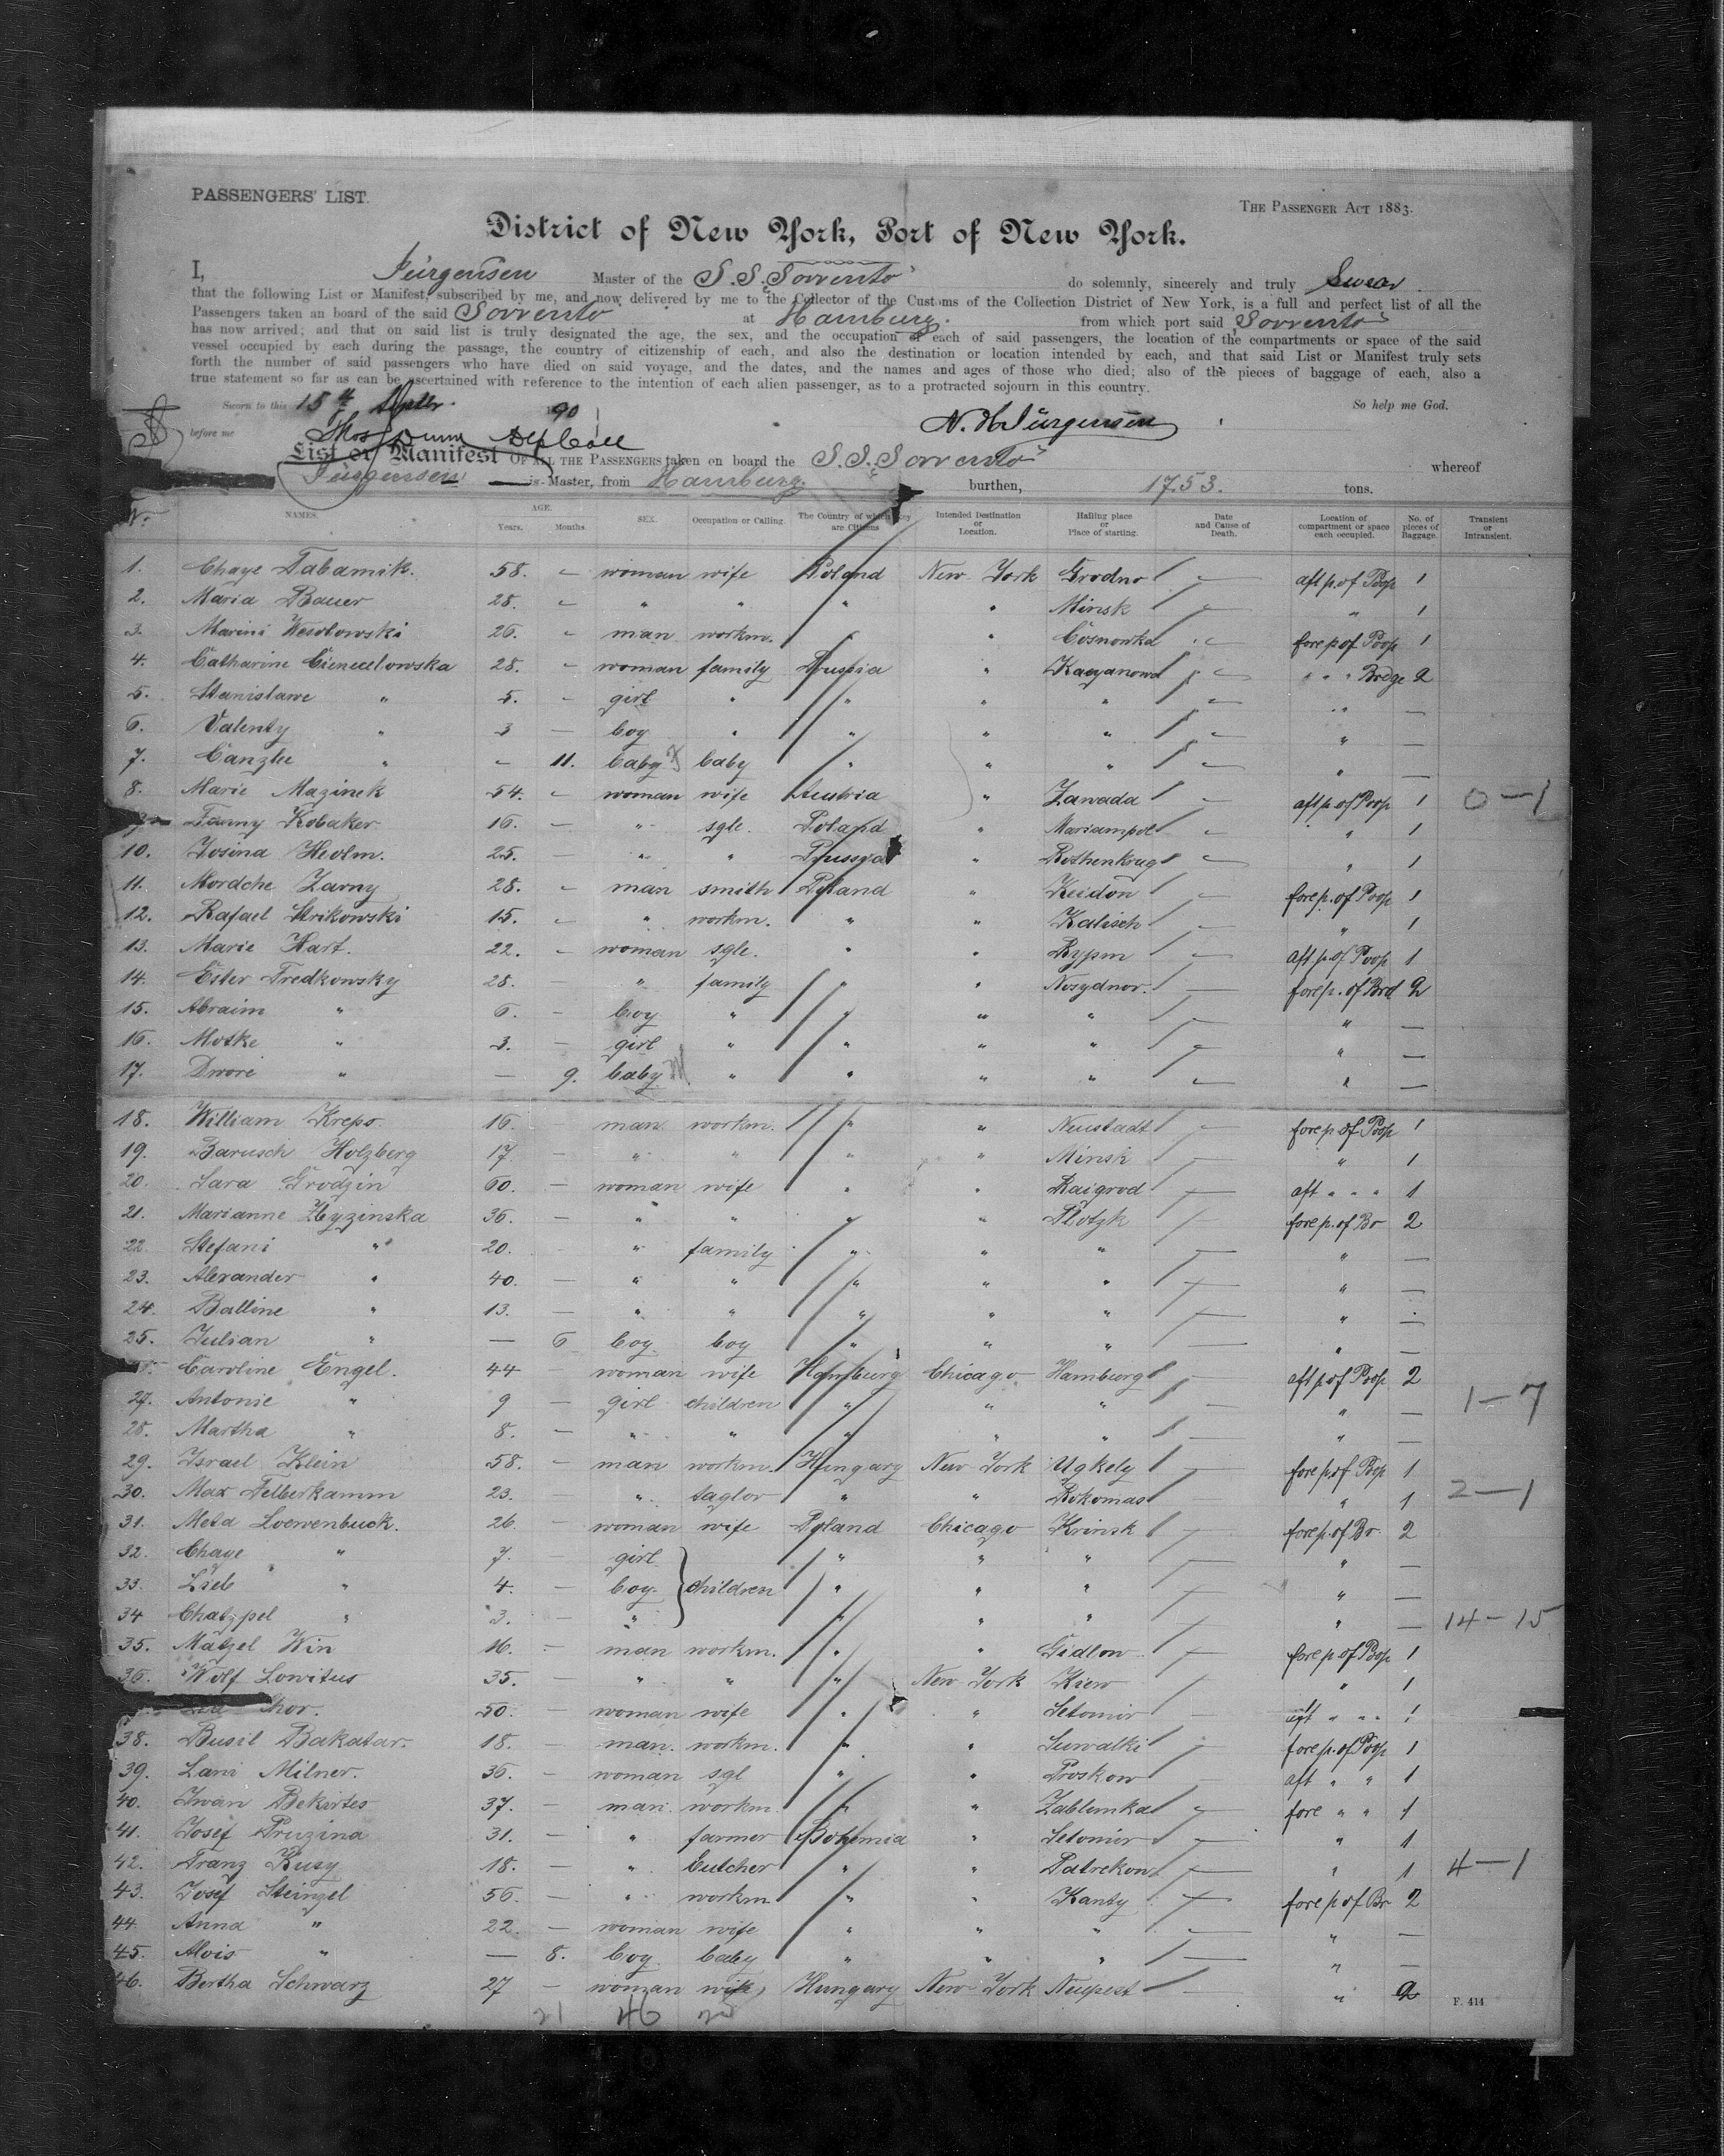 PASSENGERS' LIST.
THE PASSENGER ACT 1883.
District of New York, Port of New York.
I, Jürgensen Master of the S.S. "Sorrento" do solemnly, sincerely and truly Swear
that the following List or Manifest, subscribed by me, and now delivered by me to the Collector of the Customs of the Collection District of New York, is a full and perfect list of all the
Passengers taken on board of the said Sorrento at Hamburg. from which port said "Sorrento"
has now arrived; and that on said list is truly designated the age, the sex, and the occupation of each of said passengers, the location of the compartments or space of the said
vessel occupied by each during the passage, the country of citizenship of each, and also the destination or location intended by each, and that said List or Manifest truly sets
forth the number of said passengers who have died on said voyage, and the dates, and the names and ages of those who died; also of the pieces of baggage of each, also a
true statement so far as can be ascertained with reference to the intention of each alien passenger, as to a protracted sojourn in this country.
Sworn to this 15th 90 So help me God.
before me Thos Dunn N. H. Jürgensen
List or Manifest OF ALL THE PASSENGERS taken on board the S.S. "Sorrento" whereof
Jürgensen is Master, from Hamburg. burthen, 1753. tons.
NAMES. AGE. Years. Months. SEX. Occupation or Calling. The Country of which they are Citizens Intended Destination or Location. Hailing place or Place of starting. Date and Cause of Death. Location of compartment or space each occupied. No. of pieces of Baggage. Transient or Intransient.
1. Chaye Tabamik. 58. – woman wife Poland New York Grodno – aft p. of Poop 1
2. Maria Bauer 28. – " " " " Minsk – " 1
3. Marini Wesolowski 26. – man workm. " " – fore p of Poop 1
4. Catharine 28. – woman family Prussia " – " " " Brdge 2
5. Stanislawe " 5. – girl " " " " – " —
6. Valenty " 3 – boy " " " " – " —
7. Canzlee " – 11. baby baby " " " – " —
8. Marie Mazinek 54. – woman wife Austria " Zawada – aft p. of Poop 1 0—1
Fanny Kobaker 16. – " sgle. Poland " Mariampol – " 1
10. Josina Heolm. 25. – " " Prussia " Rothenkrug – " 1
11. Mordche Zarny 28. – man smith Poland " Keidon – fore p. of Poop 1
12. Rafael Strikowski 15. – " workm. " " Kalisch – " 1
13. Marie Hart. 22. – woman sgle. " " Rypin – aft. p. of Poop 1
14. Ester Fredkowsky 28. – " family " " – fore p. of Brd 2
15. Abraim " 6. – boy " " " " – " —
16. Motke " 3. – girl " " " " – " —
17. Dwore " — 9. baby " " " " – " —
18. William Kreps. 16. man workm. " " Neustadt – fore p. of Poop 1
19. Barusch Holzberg 17. – " " " " Minsk – " 1
20. Sara Grodzin 60. – woman wife " " Raigrod – aft " " " 1
21. Marianne Zyzinska 36. – " " " " Plotzk – fore p. of Br 2
22. Stefani " 20. – " family " " " – " —
23. Alexander " 40. – " " " " " – " —
24. Balline " 13. – " " " " " – " —
25. Julian " — 6 boy boy " " " – " —
Caroline Engel. 44 – woman wife Hamburg Chicago Hamburg – aft p of Poop 2
27. Antonie " 9 – girl children " " " – " — 1—7
28. Martha " 8. – " " " " " – " —
29. Israel Klein 58. – man workm. Hungary New York Ugkely – fore p. of Poop 1
30. Max Felberkamm 23. " taylor " " Rokomas " 1 2—1
31. Meta Loewenbuck. 26. – woman wife Poland Chicago Krinsk – fore p. of Br. 2
32. Chaye " 7. – girl " " " – " —
33. Lieb " 4. – boy children " " " – " —
34 " 3. – " " " " – " — 14—15
35. Matzel Win 16. – man workm. " " Gidlow – fore p of Poop 1
36. Wolf Lowitus 35. " " " New York Kiew – " 1
50. – woman wife " " Setomir – aft " " " 1
38. Busil Bakatar. 18. – man. workm. " " Suwalki – fore p. of Poop 1
39. Lani Milner. 36. – woman sgl " " Proskow – aft " " 1
40. Iwan Bekirtes 37. – man. workm. " " Zablemka – fore " " 1
41. Josef Pruzina 31. – " farmer Bohemia " Setomir – " 1
42. Franz Kusy 18. – " butcher " " Patrekow – " 1 4—1
43. Josef Steinzel 56. – " workm " " Kanty – fore p of Br 2
44. Anna " 22. – woman wife " " " – " —
45. Alois " — 8. boy baby " " " – " —
46. Bertha Schwarz 27 – woman wife Hungary New York Neupest – " 2
21 46 F. 414